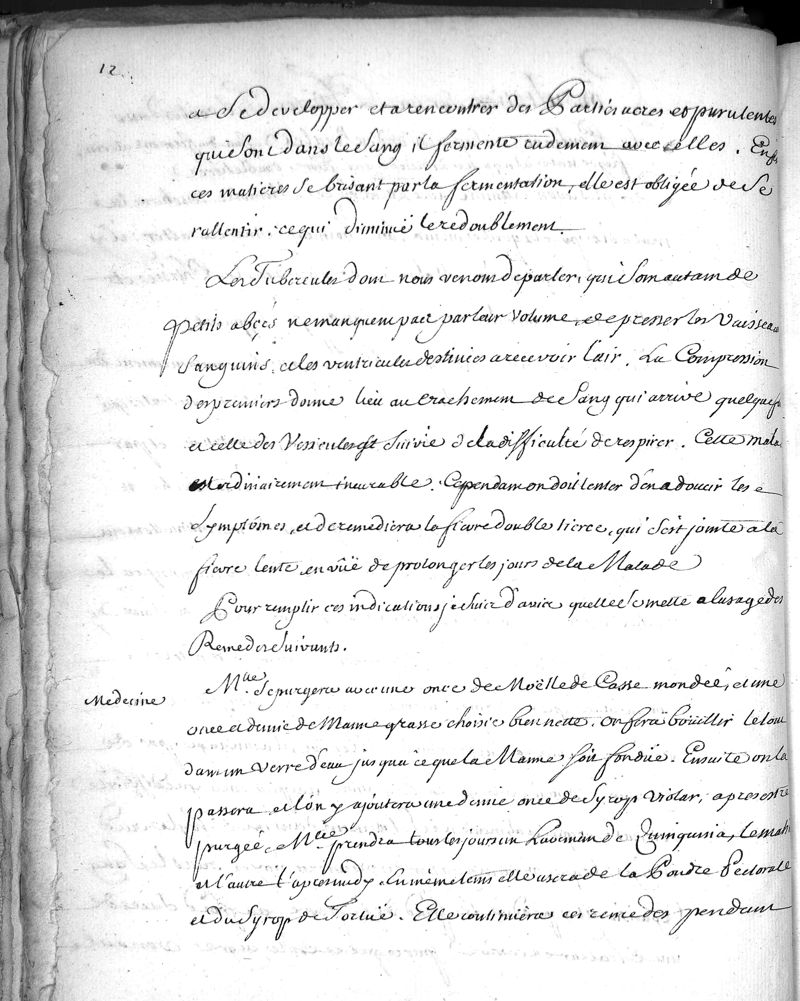 12
a Se developper et a rencontrer des Parties acres et purulentes
qui Sont dans le Sang il fermente rudement avec elles. Enfin
ces matieres Se brisant par la fermentation, elle est obligée de Se
rallentir. ce qui diminüe le redoublement.
Les Tubercules dont nous venons de parler, qui Sont autant de
Petits abçés ne manquent pas par leur volume, de presser les Vaisseaux
Sanguins, et les ventricules destinées a recevoir l'air. La Compression
des premiers donne lieu au Crachement de Sang qui arrive quelquefois
et celle des Vesicules est Suivie de la difficulté de respirer. Cette mala
est ordinairement incurable. Cependant on doit tenter d'en adoucir les
Symptômes, et de remedier a la fievre double tierce, qui s'est jointe a la
fievre lente en vüe de prolonger les jours de la Malade
Pour remplir ces indications je Suis d'avis quelle Se mette a lusage des
Remedes Suivants.
Medecine
Mlle. Se purgera avec une once de Moëlle de Casse mondée, et une
once et demie de Manne grasse choisie bien nette. on fera boüillir le tout
dans un verre d'eau jusqu'a ce que la Manne soit fondüe. Ensuite on la
passera, et l'on y ajoutera une demie once de Syrop Violat, apres estre
purgée Mlle prendra tous les jours un Lavement de Quinquina, le matin
et l'autre l'apresmidy. En méme tems elle usera de la Poudre Pectorale
et du Syrop de Tortüe. Elle continüera ces remedes pendant